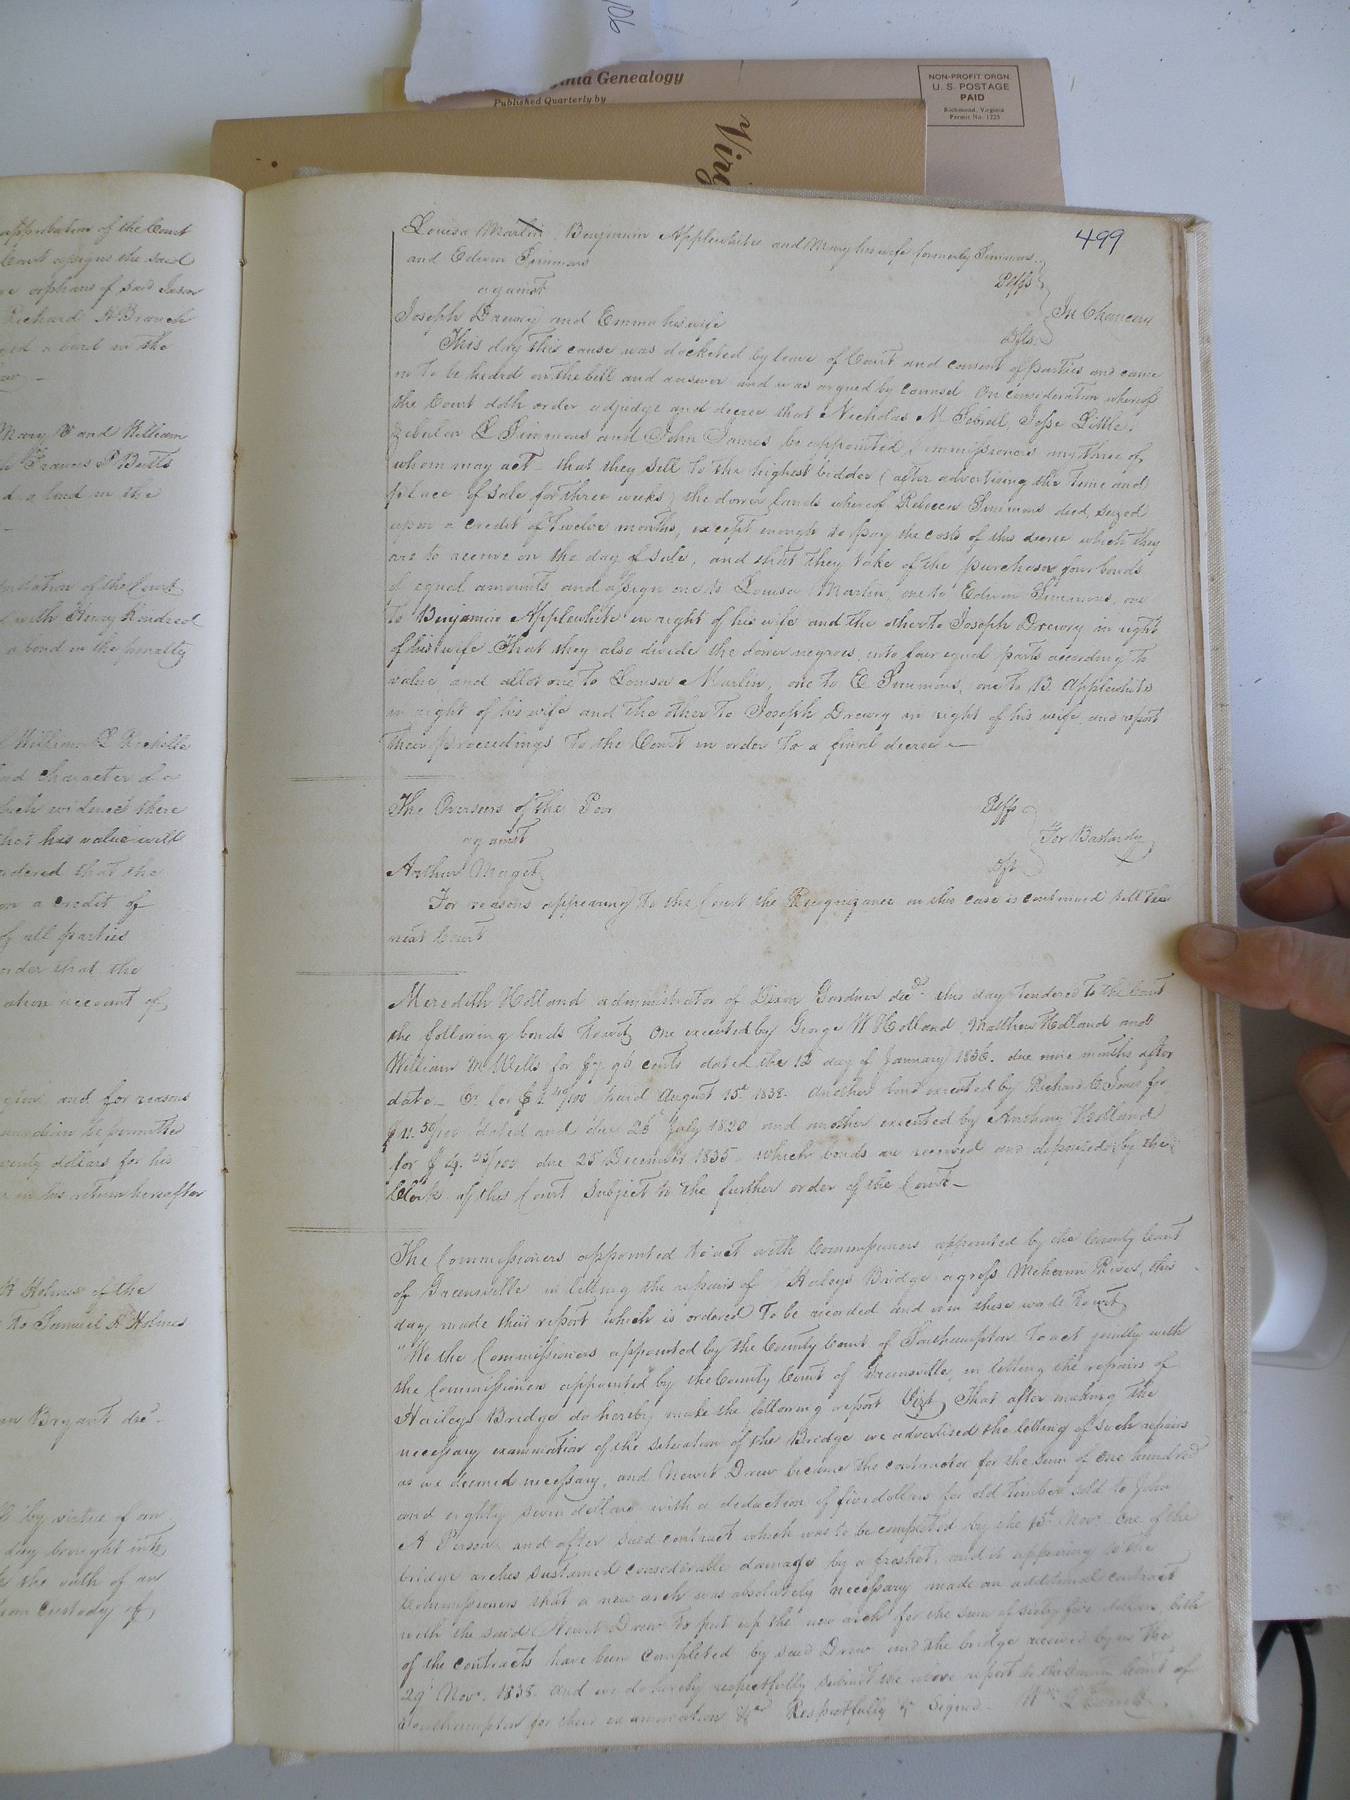 106
Virginia Genealogy
Published Quarterly by
NON-PROFIT ORGN.
U. S. POSTAGE
PAID
Richmond, Virginia
Permit No. 1225
Virg
approbation of the Court
Court assigns the said
orphans of said Jason
Richard H Branch
a bond in the
Mary and William
Francis P Butts
bond in the
of the Court
with Henry Kindred
a bond in the penalty
William L
character of a
such evidence there
that his value will
ordered that the
on a credit of
of all parties
order that the
ation account of
and for reasons
guardian be permitted
twenty dollars for his
in his return hereafter
Holmes of the
to Samuel B Holmes
Bryant decd.
by virtue of an
day brought into
the oath of an
from custody of
499
Louisa Marlin Benjamin Applewhite and Mary his wife formerly Simmons
and Edwin Simmons Plffs
against
In Chancery
Joseph Drewry and Emma his wife Dfts
This day this cause was docketed by leave of Court and consent of parties and came
on to be heard on the bill and answer and was argued by counsel On consideration whereof
the Court doth order adjudge and decree that Nicholas M Sebrell, Jesse Little,
L Simmons and John James be appointed Commissioners any three of
whom may act – that they sell to the highest bidder (after advertising the time and
place of sale for three weeks) the dower lands whereof Rebecca Simmons died, seized
upon a credit of Twelve months, except enough to pay the costs of this decree which they
are to receive on the day of sale, and that they take of the purchaser four bonds
of equal amounts and assign one to Louisa Marlin, one to Edwin Simmons, one
to Benjamin Applewhite in right of his wife and the other to Joseph Drewry in right
of his wife That they also divide the dower negroes into four equal parts according to
value and allot one to Louisa Marlin, one to E Simmons, one to B Applewhite
in right of his wife and the other to Joseph Drewry in right of his wife, and report
their proceedings to the Court in order to a final decree —
The Overseers of the Poor Plffs
against
For Bastardy
Arthur Maget Dft
For reasons appearing to the Court the Recognizance in this case is continued till the
next Court
Meredith Holland administrator of Dixon Gardner decd. this day tendered to the Court
the following bonds towit, One executed by George W Holland, Matthew Holland and
William M Wells for $7. 96 cents dated the 12 day of January 1836. due nine months after
date – Cr. for $ paid August 15th 1838. Another bond executed by Richard C Jones for
$11.50/100 dated and due 26th July 1820 and another executed by Anthony Holland
for $4. 25/100 due 25 December 1835 which bonds are received and deposited by the
Clerk of this Court subject to the further order of the Court –
The Commissioners appointed to act with Commissioners appointed by the County Court
of Greensville in letting the repairs of Haleys Bridge across Meherrin River, this
day made their report which is ordered to be recorded and is in these words towit,
"We the Commissioners appointed by the County Court of Southampton to act jointly with
the Commissioners appointed by the County Court of Greensville, in letting the repairs of
Haileys Bridge do hereby make the following report Vizt, That after making the
necessary examination of the situation of the Bridge we advertised the letting of such repairs
as we deemed necessary, and Newit Drew became the contractor for the sum of one hundred
and eighty seven dollars with a deduction of five dollars for old timber sold to John
A Person and after said contract which was to be completed by the 15th Nov. One of the
bridge arches sustained considerable damage by a freshet, and it appearing to the
Commissioners that a new arch was absolutely necessary made an additional contract
with the said Newit Drew to put up the new arch for the sum of sixty five dollars, both
of the contracts have been completed by said Drew and the bridge received by us the
29 Nov. 1838. and we do hereby respectfully submit the above report to the County Court of
Southampton for their examination &c Respectfully &c Signed. Wm L